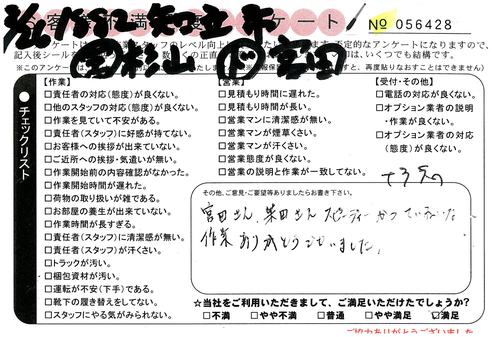 № 056428
チェックリスト
【作業】
□責任者の対応(態度)が良くない。
□他のスタッフの対応(態度)が良くない。
□作業を見ていて不安がある。
□責任者(スタッフ)に好感が持てない。
□お客様への挨拶が出来ていない。
□ご近所への挨拶・気遣いが無い。
□作業開始前の内容確認がなかった。
□作業開始時間が遅れた。
□荷物の取り扱いが雑である。
□お部屋の養生が出来ていない。
□作業時間が長すぎる。
□責任者(スタッフ)に清潔感が無い。
□責任者(スタッフ)が汗くさい。
□トラックが汚い。
□梱包資材が汚い。
□運転が不安(下手)である。
□靴下の履き替えをしてない。
□スタッフにやる気がみられない。
【営業】
□見積もり時間に遅れた。
□見積もり時間が長い。
□営業マンに清潔感が無い。
□営業マンが煙草くさい。
□営業マンが汗くさい。
□営業態度が良くない。
□営業の説明と作業が一致してない。
【受付・その他】
□電話の対応が良くない。
□オプション業者の説明
・作業が良くない。
□オプション業者の対応
(態度)が良くない。
その他、ご意見・ご要望等ありましたらお書き下さい。
作業ありがとうございました。
☆当社をご利用いただきまして、ご満足いただけたでしょうか?
□不満 □やや不満 □普通 □やや満足 ☑満足
ご協力ありがとうございました